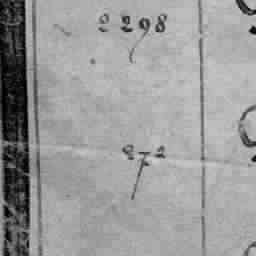 2298
272